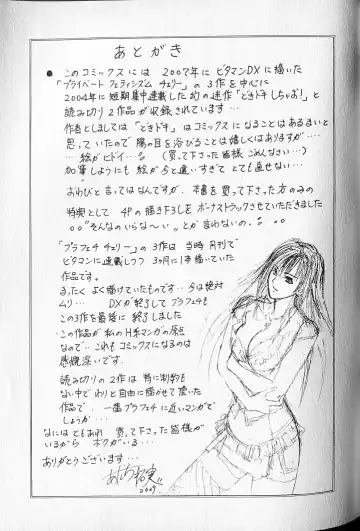 あとがき
● このコミックスには 2007年に ビタマンDXに描いた
「プライベート フェティシズム チェリー」の 3作を中心に
2004年に短期集中連載した幻の迷作「どきドキしちゃお!」と
読み切り 2作品が収録されています…
作者としましては「どきドキ」はコミックスになることはあるまいと
思っていたので 陽の目を浴びることは嬉しくはありますが・・・・
‥‥絵がヒドイ…。 (買って下さった皆様 ごめんなさい…)
加筆しようにも 絵が今と違いすぎて とても直せない…。
おわびと言ってはなんですが、本書を買って下さった方のみの
特典として 4Pの描き下3しを ボーナストラックさせていただきました
"そんなのいらな~い" とか言わないの。
「プラフェチ チェリー」の 3作は 当時 月刊で
ビタマンに連載しつつ 3ヶ月に1本描いていた
作品です。
まったく よく描けていたものです…今は絶対
ムリ… DXが終了して プラフェチも
この3作を最後に 終了しました
この作品が 私の H系マンガの原点
なので‥ これもコミックスになるのは
感慨深いです。
読み切りの 2作は 特に制約も
ない中で わりと自由に描かせて頂いた
作品で、一番プラフェチに近いマンガで
しょうか…
なにはともあれ 買って下さった皆様が
いるから ボクがいる…
ありがとうございます…
2009